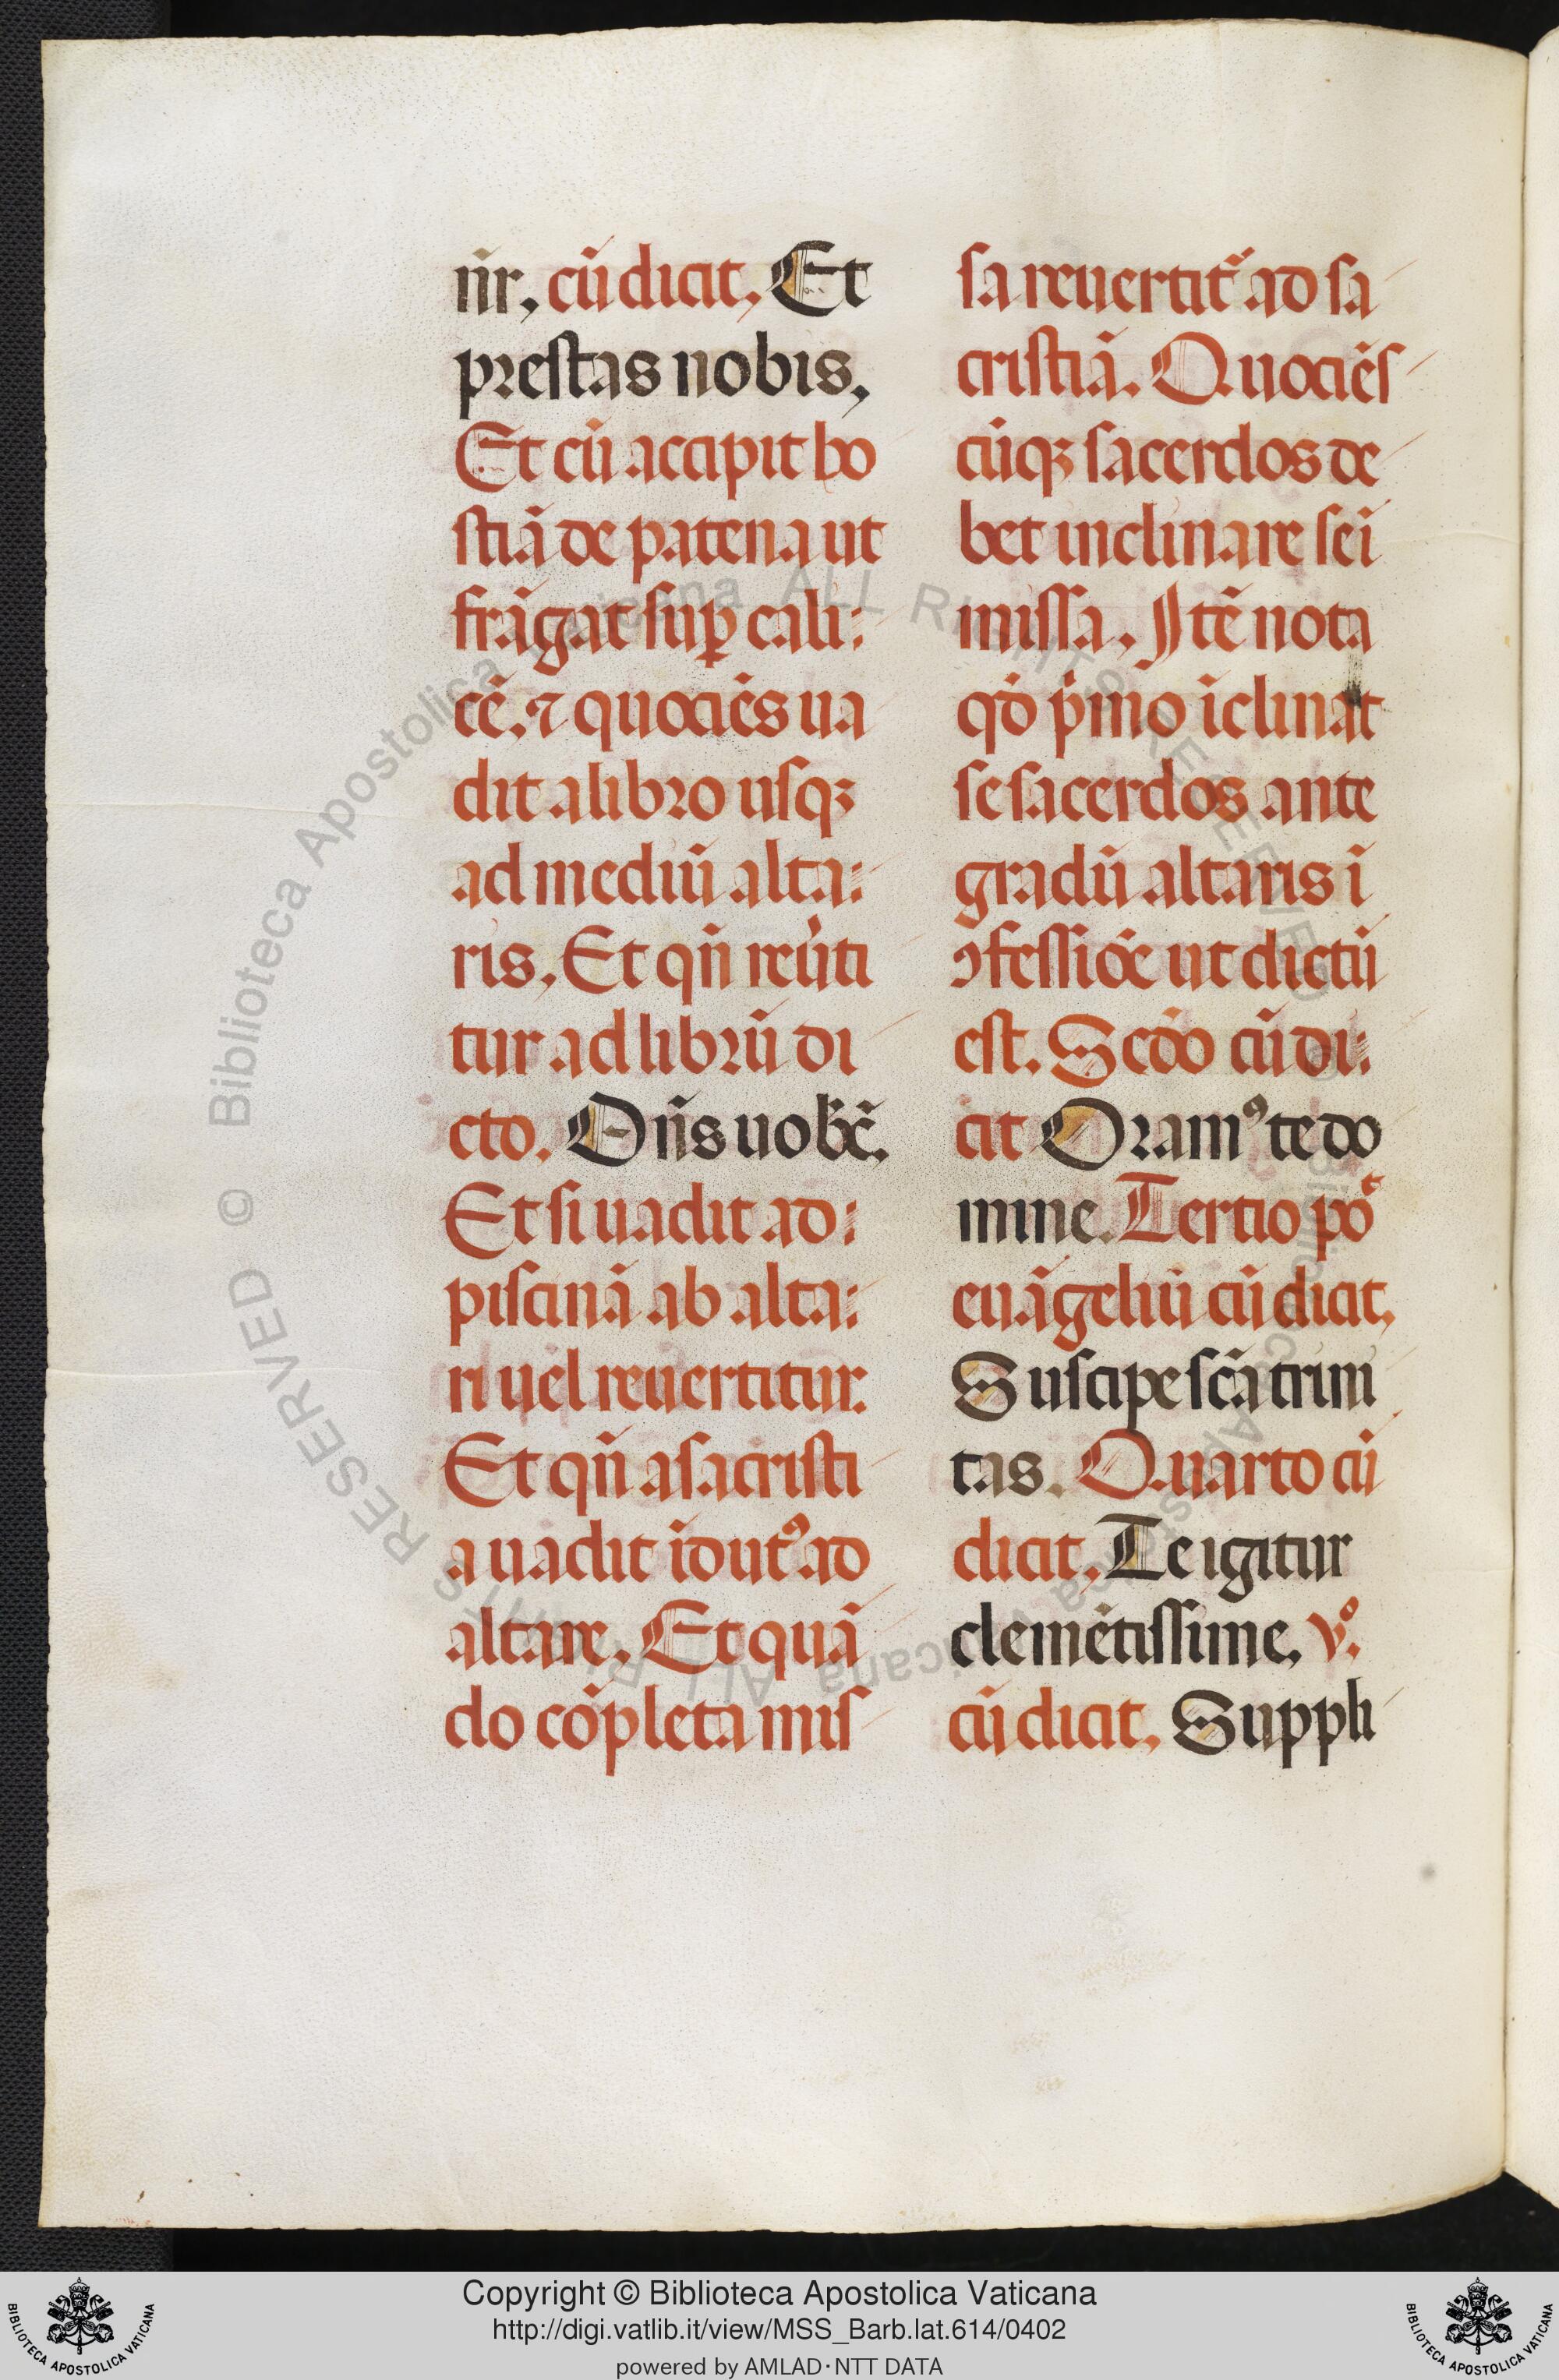 nr̃, cũ dicit, Et
prestas nobis,
Et cũ accipit ho
stiã de patena ut
frãgat suꝑ cali:
cẽ. ⁊ quociẽs ua
dit a libro usqꝫ
ad mediũ alta:
ris. Et qñ reũti
tur ad librũ di
cto. Dñs uobĩc̃.
Et si uadit ad:
piscinã ab alta:
ri uel reuertitur.
Et qñ a sacristi
a uadit idutꝰ ad
altare. Et quã
do cõpleta mis
sa reuertit᷑ ad sa
cristiã. Quociẽs
cũqꝫ sacerdos de
bet inclinare se ĩ
missa. Itẽ nota
qđ p̃mo ĩclinat
se sacerdos ante
gradũ altaris ĩ
ꝯfessiõe ut dictũ
est. Scđo cũ di:
cit Oramꝰ te do
mine. Tertio pꝰ
euãgeliũ cũ dicit,
Suscipe scã trini
tas. Quarto cũ
dicit, Te igitur
clemẽtissime, vº.
cũ dicit, Suppli
© Biblioteca Apostolica Vaticana ALL RIGHTS RESERVED
© Biblioteca Apostolica Vaticana ALL RIGHTS RESERVED
Copyright © Biblioteca Apostolica Vaticana
http://digi.vatlib.it/view/MSS_Barb.lat.614/0402
powered by AMLAD·NTT DATA
BIBLIOTECA APOSTOLICA VATICANA
BIBLIOTECA APOSTOLICA VATICANA